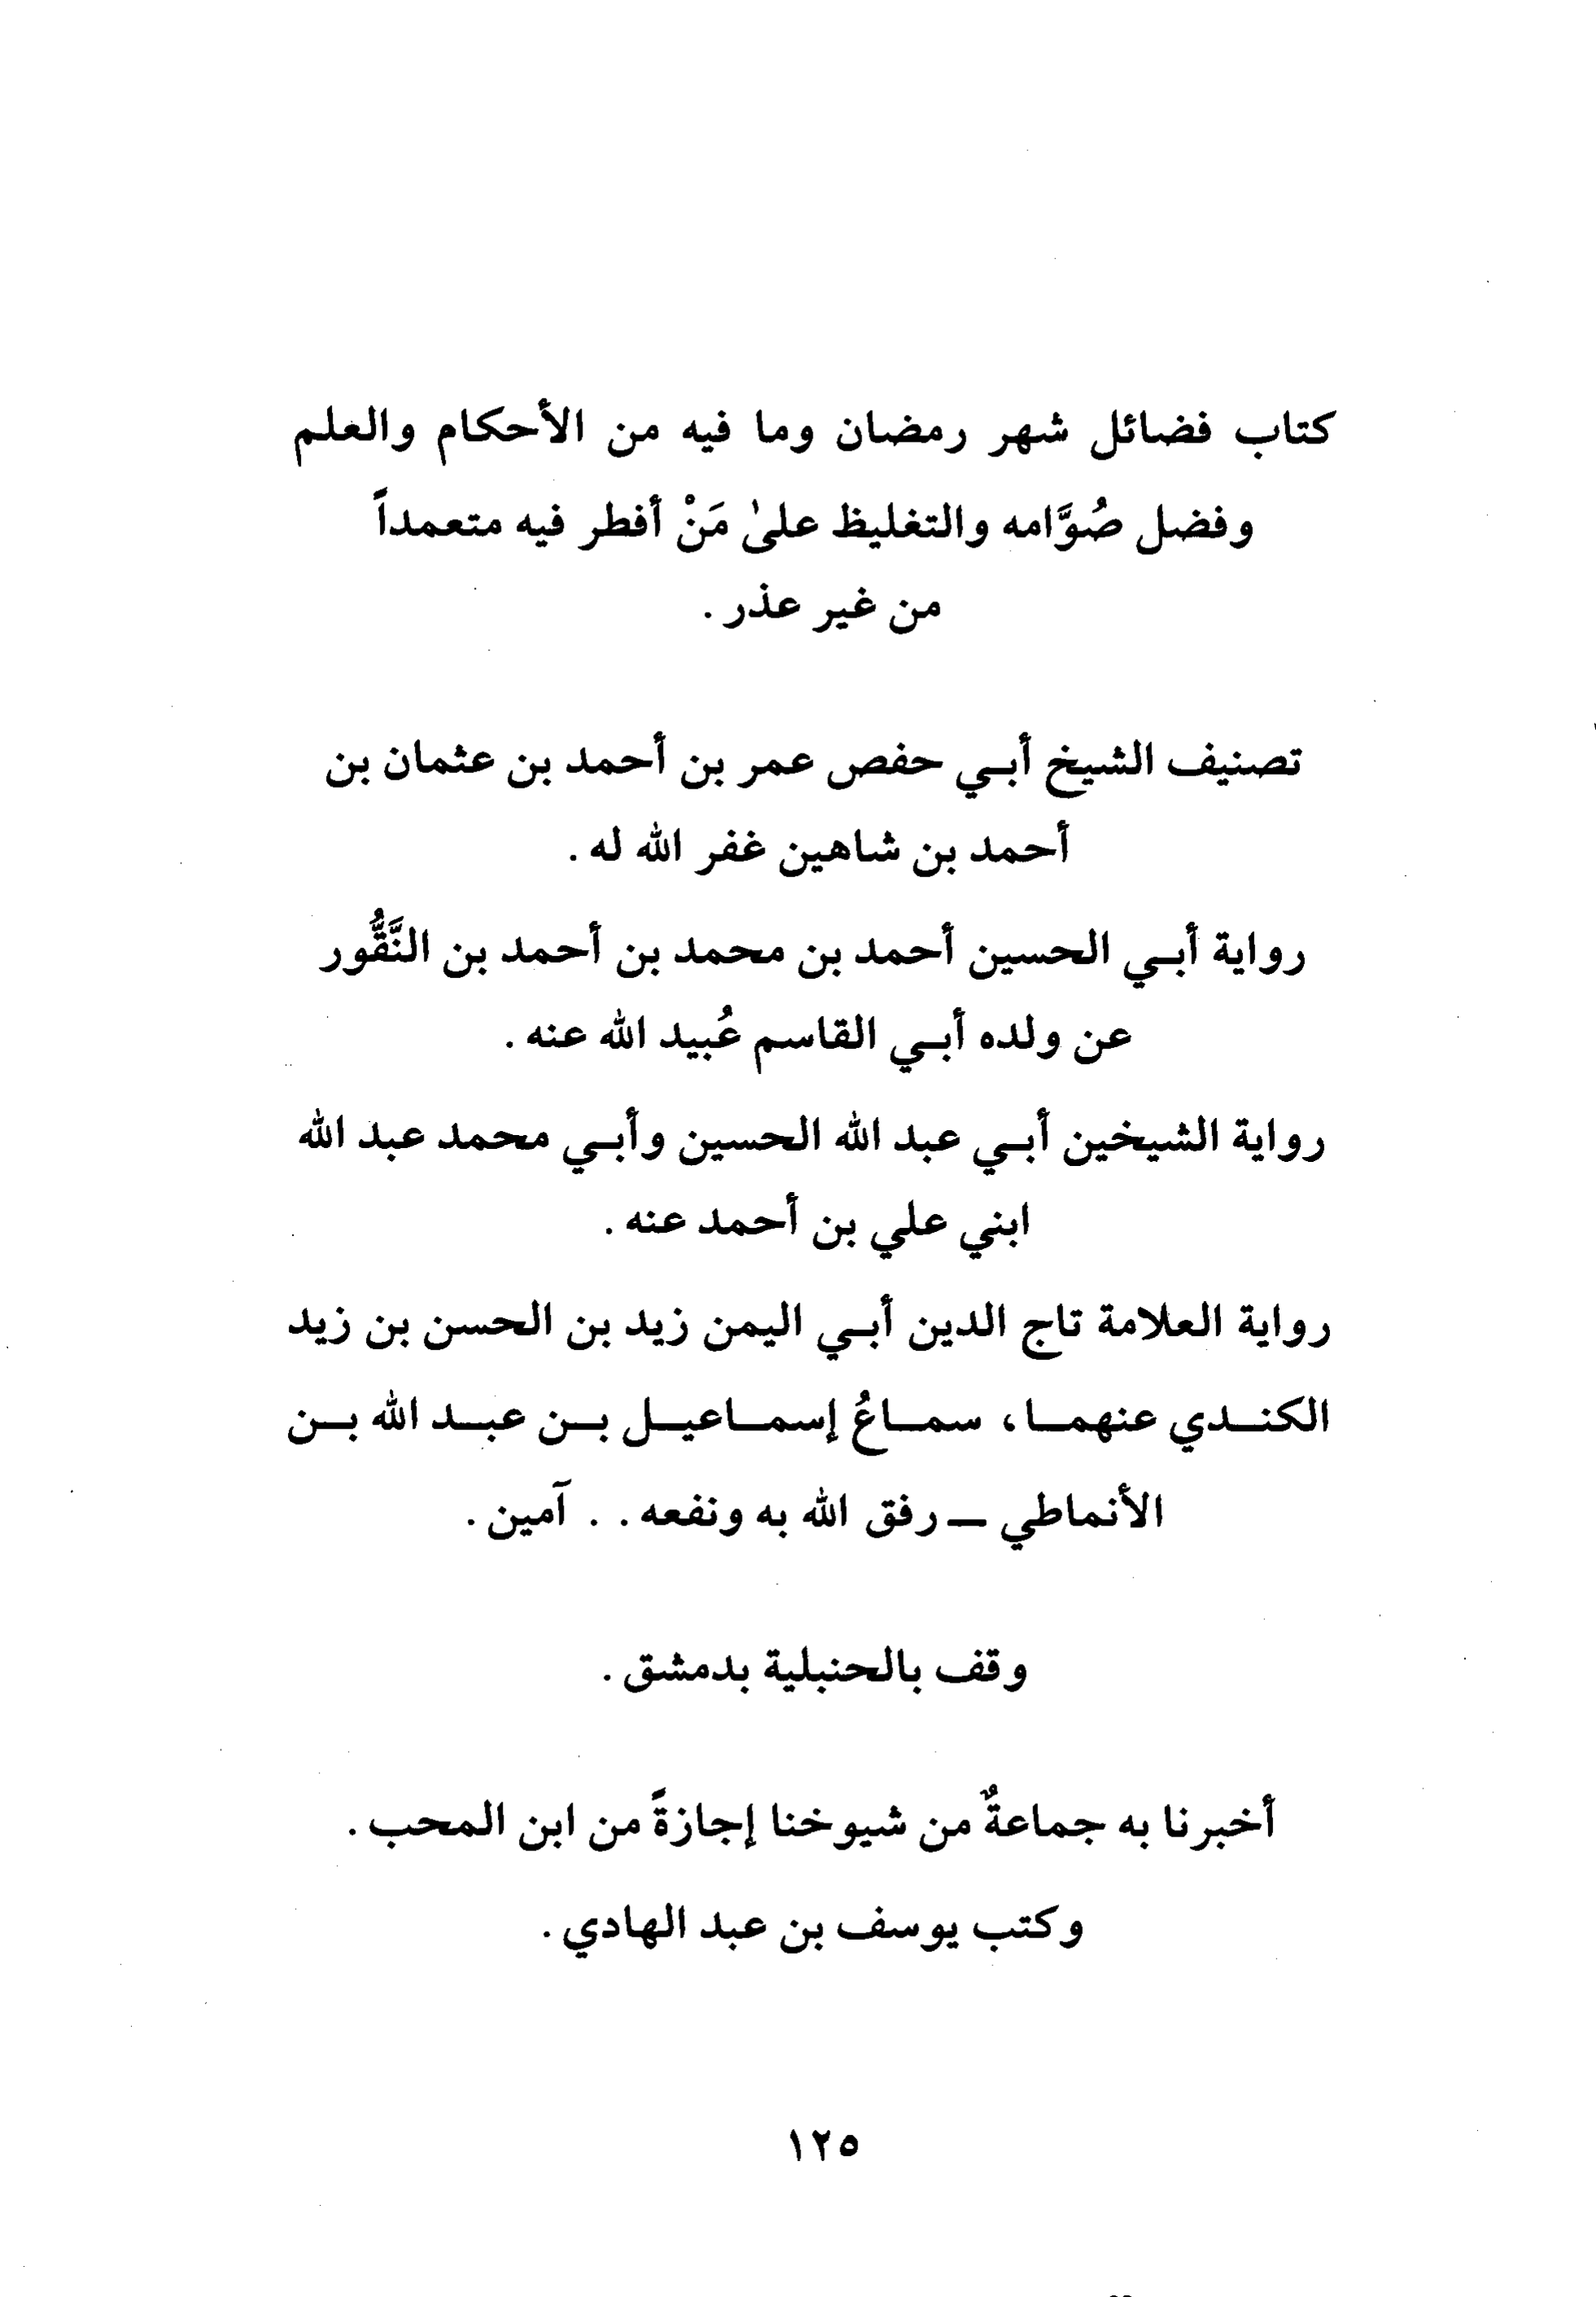 كتاب فضائل شهر رمضان وما فيه من الأحكام والعلم
وفضل صُوَّامه والتغليظ علىٰ مَنْ أفطر فيه متعمداً
من غير عذر .
تصنيف الشيخ أبي حفص عمر بن أحمد بن عثمان بن
أحمد بن شاهين غفر الله له .
رواية أبي الحسين أحمد بن محمد بن أحمد بن النَّقُّور
عن ولده أبي القاسم عُبيد الله عنه .
رواية الشيخين أبي عبد الله الحسين وأبي محمد عبد الله
ابني علي بن أحمد عنه .
رواية العلامة تاج الدين أبي اليمن زيد بن الحسن بن زيد
الكندي عنهما، سماعُ إسماعيل بن عبد الله بن
الأنماطي ــ رفق الله به ونفعه . . آمين .
وقف بالحنبلية بدمشق .
أخبرنا به جماعةٌ من شيوخنا إجازةً من ابن المحب .
وكتب يوسف بن عبد الهادي .
١٢٥